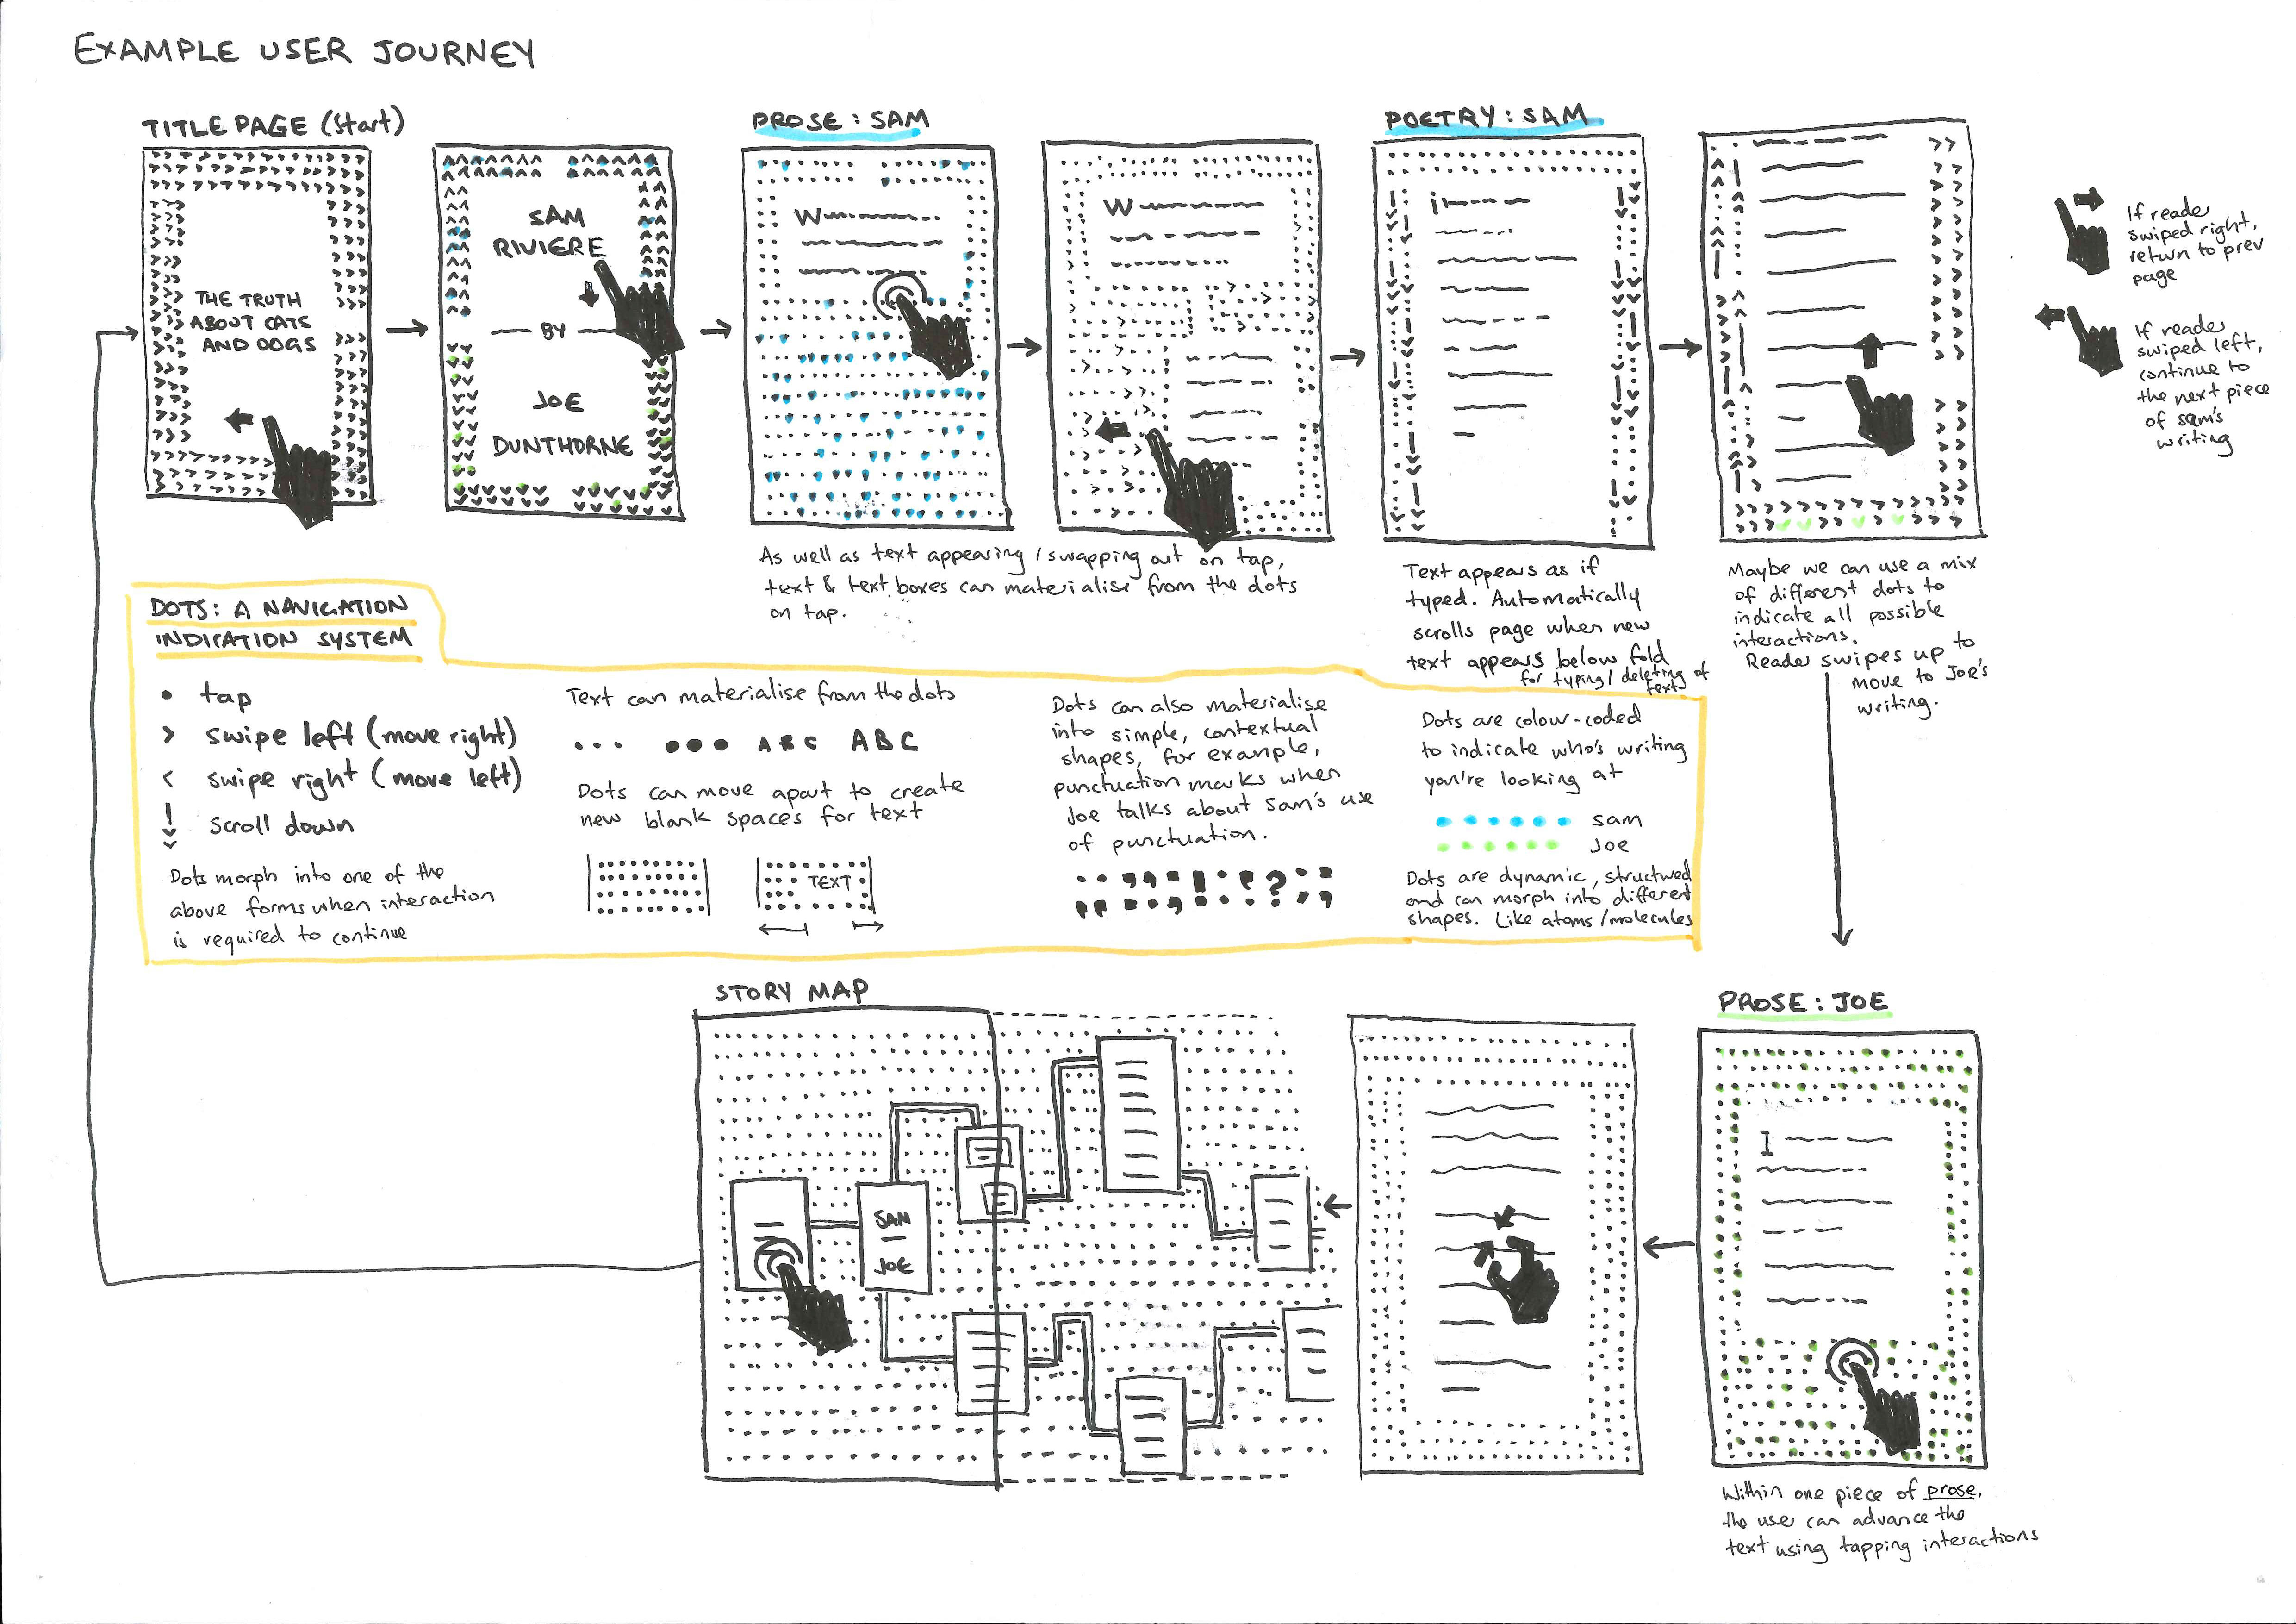 EXAMPLE USER JOURNEY
TITLE PAGE (Start)
THE TRUTH
ABOUT CATS
AND DOGS
SAM
RIVIERE
BY
JOE
DUNTHORNE
PROSE : SAM
W
W
As well as text appearing / swapping out on tap,
text & text boxes can materialise from the dots
on tap.
POETRY : SAM
i
Text appears as if
typed. Automatically
scrolls page when new
text appears below fold
for typing / deleting of
text
Maybe we can use a mix
of different dots to
indicate all possible
interactions.
Reader swipes up to
move to Joe's
writing.
If reader
swiped right,
return to prev
page
If reader
swiped left,
continue to
the next piece
of sam's
writing
DOTS : A NAVIGATION
INDICATION SYSTEM
• tap
> swipe left (move right)
< swipe right (move left)
scroll down
Dots morph into one of the
above forms when interaction
is required to continue
Text can materialise from the dots
ABC ABC
Dots can move apart to create
new blank spaces for text
TEXT
Dots can also materialise
into simple, contextual
shapes, for example,
punctuation marks when
Joe talks about Sam's use
of punctuation.
Dots are colour-coded
to indicate who's writing
you're looking at
sam
Joe
Dots are dynamic, structured
and can morph into different
shapes. Like atoms/molecules
STORY MAP
SAM
JOE
PROSE : JOE
I
Within one piece of prose,
the user can advance the
text using tapping interactions